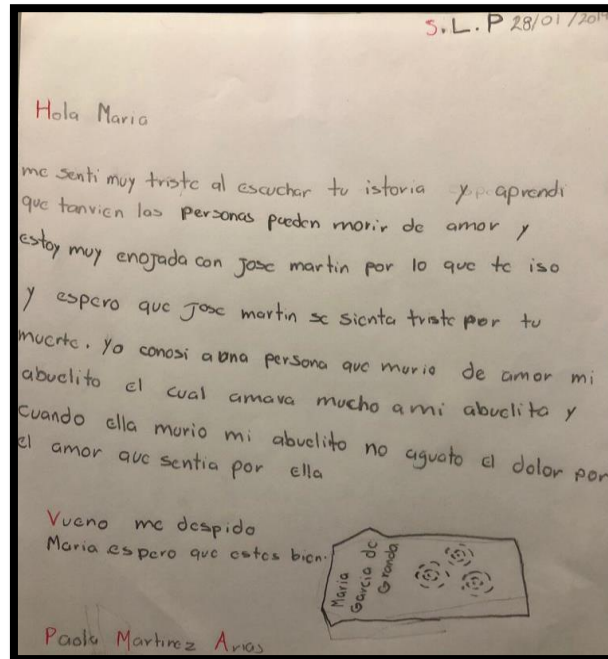 S.L.P 28/01/2019
Hola Maria
me senti muy triste al escuchar tu istoria y aprendi
que tanvien las personas pueden morir de amor y
estoy muy enojada con jose martin por lo que te iso
y espero que jose martin se sienta triste por tu
muerte. yo conosi a una persona que murio de amor mi
abuelito el cual amava mucho a mi abuelita y
cuando ella murio mi abuelito no aguato el dolor por
el amor que sentia por ella
Vueno me despido
Maria espero que estes bien.
Maria
Garcia de
Granda
Paola Martinez Arias